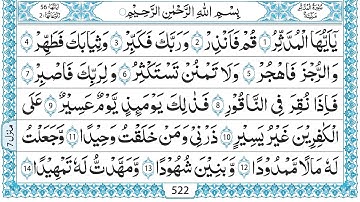 بِسْمِ اللهِ الرَّحْمٰنِ الرَّحِيْمِ
يٰۤاَيُّهَا الْمُدَّثِّرُ 1 قُمْ فَاَنْذِرْ 2 وَرَبَّكَ فَكَبِّرْ 3 وَثِيَابَكَ فَطَهِّرْ 4
وَالرُّجْزَ فَاهْجُرْ 5 وَلَا تَمْنُنْ تَسْتَكْثِرُ 6 وَلِرَبِّكَ فَاصْبِرْ 7
فَاِذَا نُقِرَ فِى النَّاقُوْرِ 8 فَذٰلِكَ يَوْمَىِٕذٍ يَّوْمٌ عَسِيْرٌ 9 عَلَى
الْكٰفِرِيْنَ غَيْرُ يَسِيْرٍ 10 ذَرْنِىْ وَمَنْ خَلَقْتُ وَحِيْدًا 11 وَّجَعَلْتُ
لَهٗ مَالًا مَّمْدُوْدًا 12 وَّبَنِيْنَ شُهُوْدًا 13 وَّمَهَّدْتُّ لَهٗ تَمْهِيْدًا 14
522